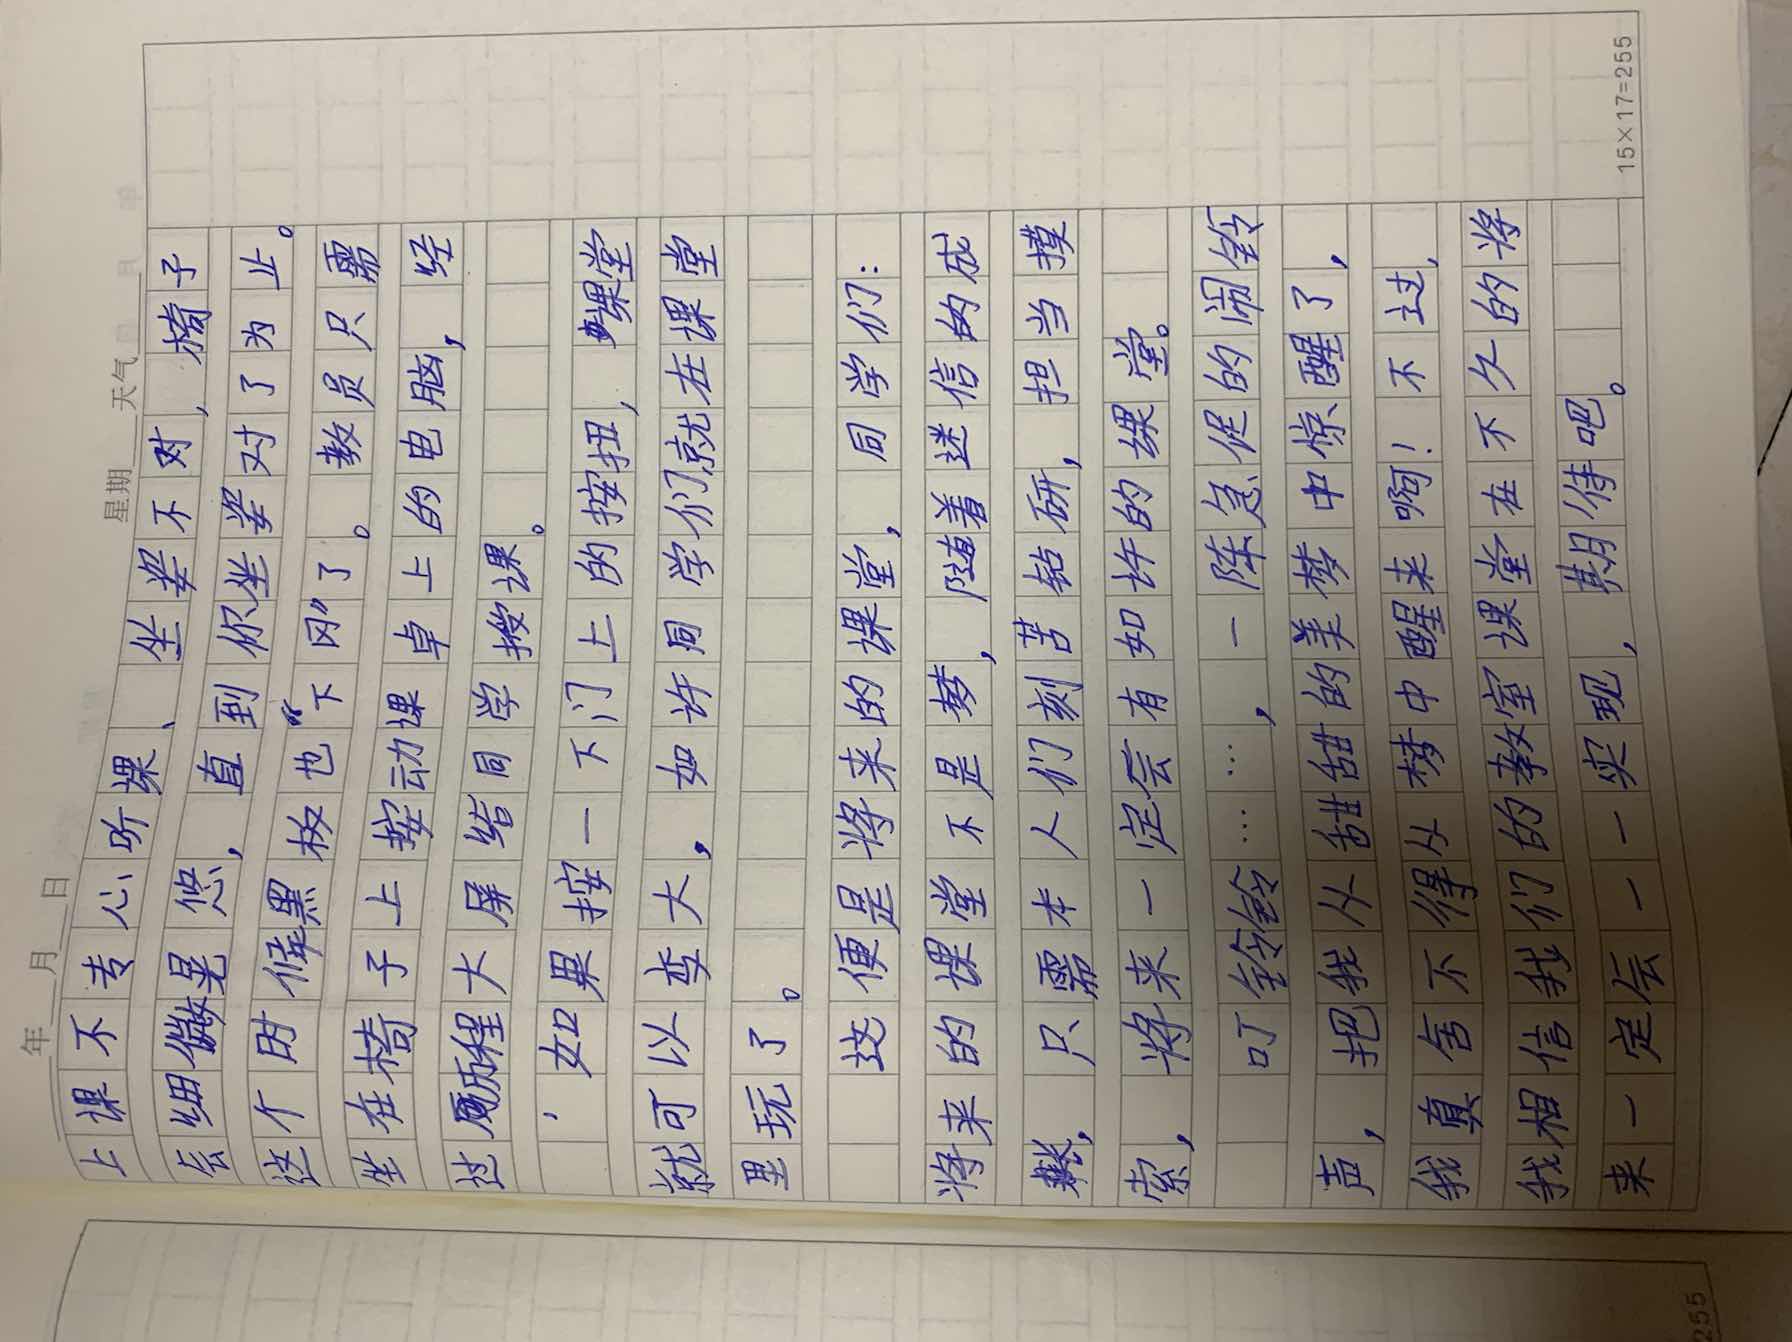 年 月 日 星期 天气
上课不专心听课、坐姿不对,椅子
会细微晃悠,直到你坐姿对了为止。
这个时候黑板也“下冈”了。教员只需
坐在椅子上按动课卓上的电脑,经
过历程大屏给同学授课。
如果按一下门上的按扭,课堂
就可以变大,如许同学们就在课堂
里玩了。
这便是将来的课堂,同学们:
将来的课堂不是梦,随着迷信的成
就,只需本人们刻苦钻研,担当摸
索,将来一定会有如许的课堂。
叮铃铃……,一陈急促的闹铃
声,把我从甜甜的美梦中惊醒了,
我真舍不得从梦中醒来啊!不过,
我相信我们的教室课堂在不久的将
来一定会一一实现,期待吧。
15×17=255
255